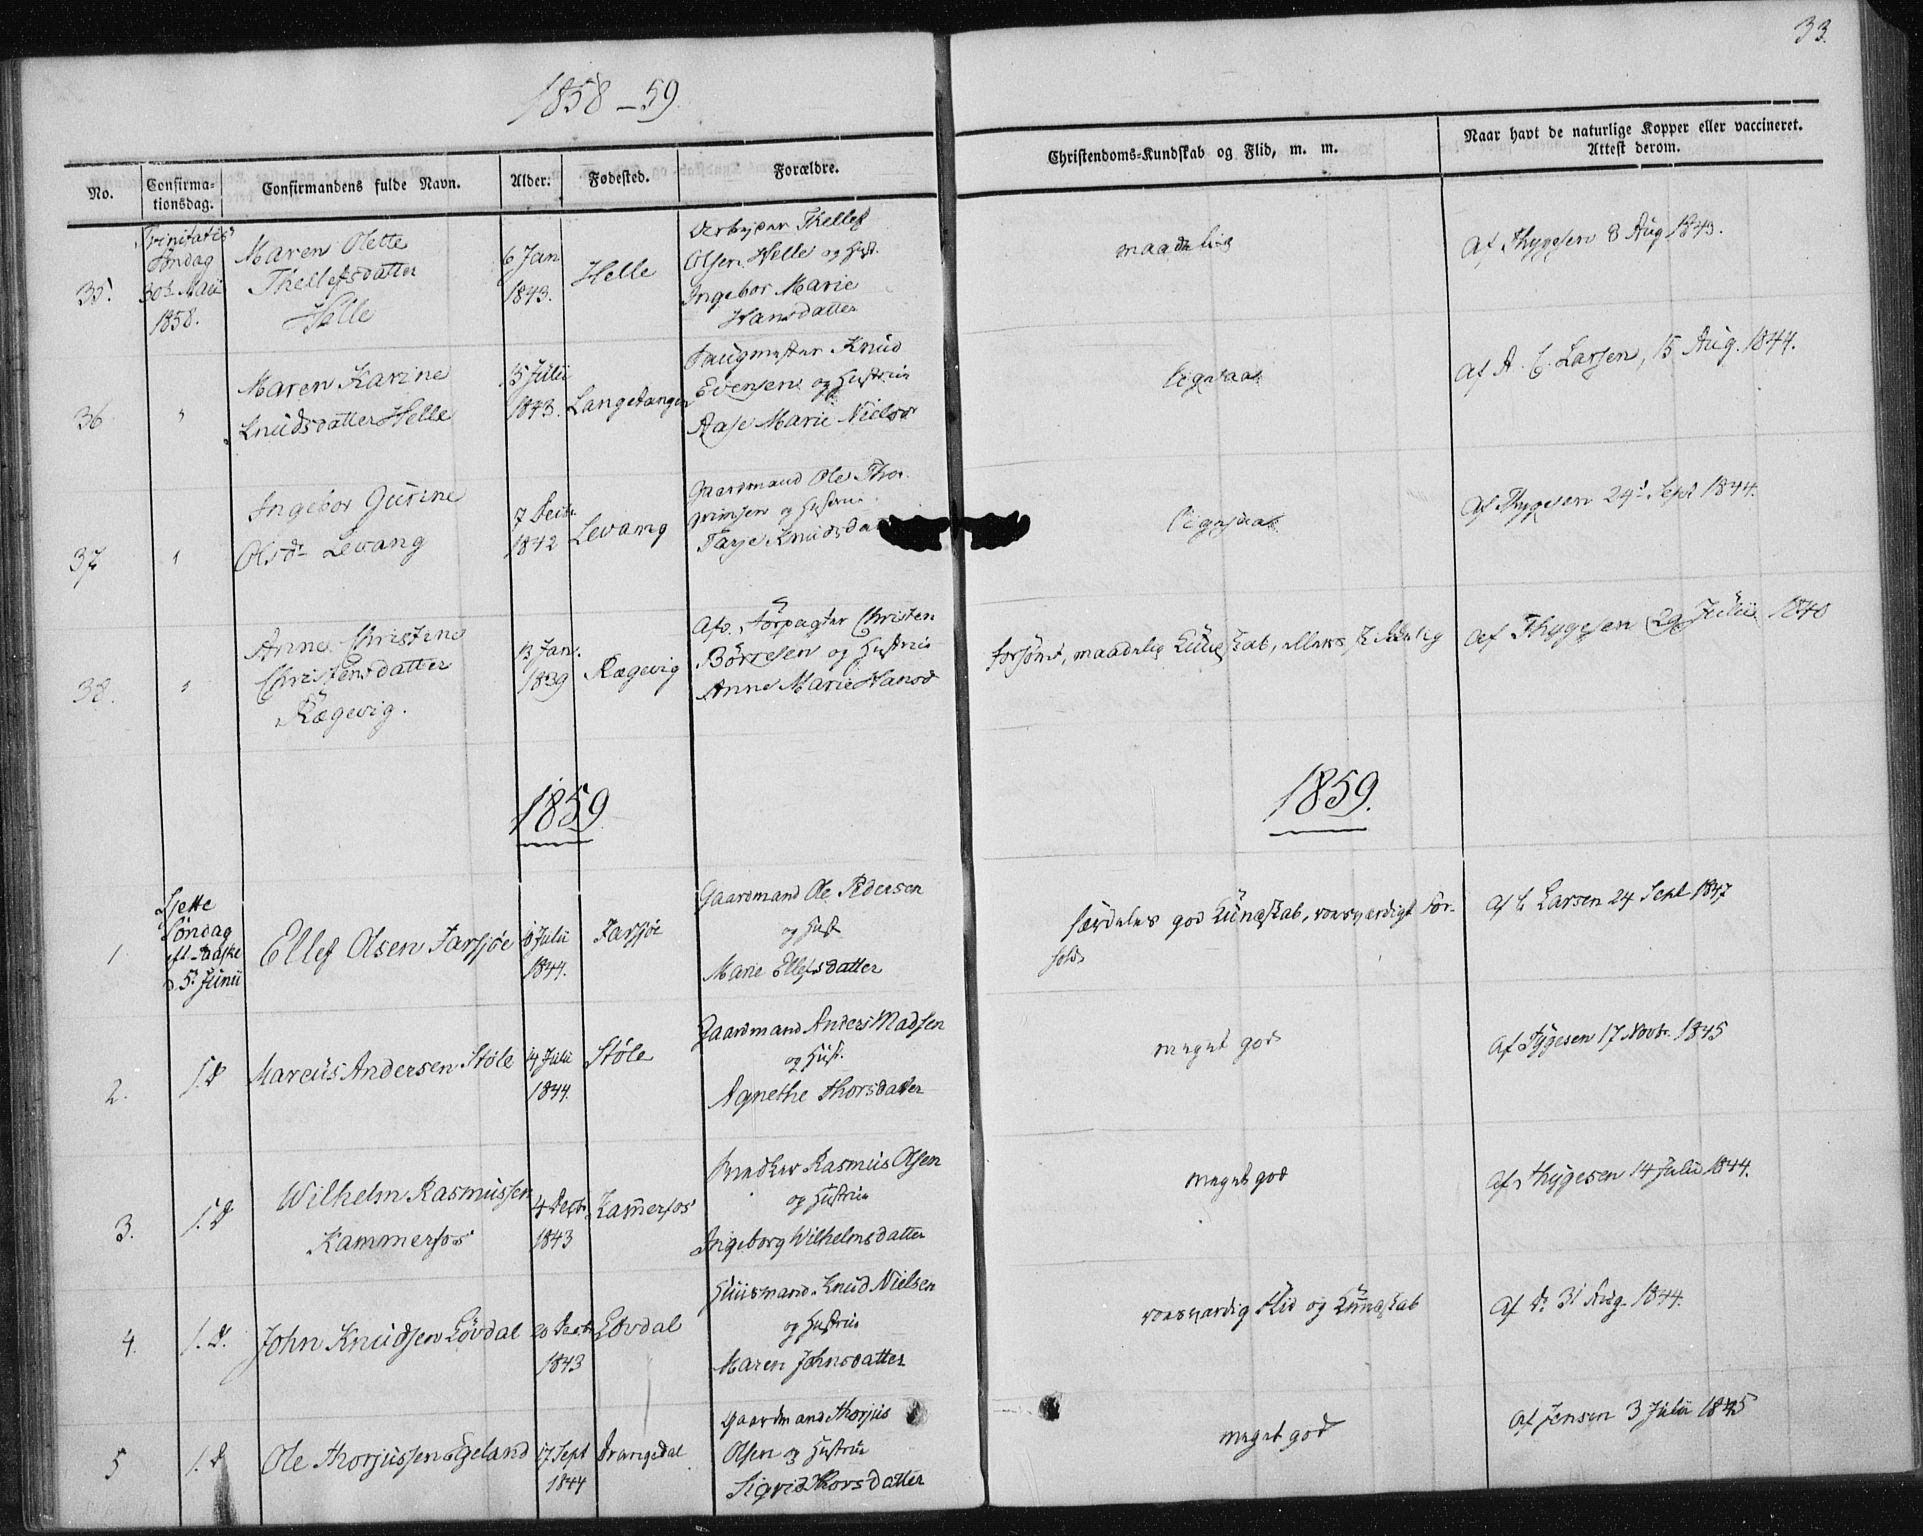 33.
1858–59.
No.
Confirma-
tionsdag.
Confirmandens fulde Navn.
Alder.
Fødested.
Forældre.
Christendoms-Kundskab og Flid, m. m.
Naar havt de naturlige Kopper eller vaccineret.
Attest derom.
35.
Trinitatis
Søndag
30d Maii
1858.
Maren Olette
Thellefsdatter
Helle
6 Jan
1843.
Helle
Arbejder Thellef
Olsen Helle og Hust.
Ingebor Marie
Hansdatter
maadelig
af Thygesen 8 Aug 1843.
36
"
Maren Karine
Knudsdatter Helle
15 Julii
1843.
Langetangen
Laugmester Knud
Evensen og Hustrue
Aase Marie Nielsd
ligesaa
af A. C. Larsen, 15 Aug. 1844.
37
"
Ingebor Gurine
Olsdr Levang
7 Decbr
1842
Levang
Gaardmand Ole Thor-
grimsen og Hustrue
Tarje Knudsda
ligesaa
af Thygesen 24d Sept 1844.
38.
"
Anne Christine
Christensdatter
Rægevig.
12 Jan.
1839
Rægevig
Afd. Forpagter Christen
Börresen og Hustrue
Anne Marie Hansd
forsömt, maadelig Kundskab, ellers skikkelig
af Thygesen 29 Julii 1840
1859
1859.
1.
Sjette
Søndag
eft. Paaske
d. 5d Junii
Ellef Olsen Farsjöe
8 Julii
1844.
Farsjöe
Gaardmand Ole Pedersen
og Hust
Marie Ellefsdatter
særdeles god Kundskab, roesværdigt For-
hold
af C Larsen 24 Sept 1847
2.
1. d
Marcus Andersen Støle
14 Juli
1844.
Støle
Gaardmand Anders Madsen
og Hust.
Agnethe Thorsdatter
meget god
af Tygesen 17 Novbr. 1845
3.
1. d
Wilhelm Rasmussen
Kammerfos
4 Decbr.
1843
Kam̄erfos
Snedker Rasmus Olsen
og Hustrue
Ingeborg Wilhelmsdatter
meget god
af Thygesen 14 Julii 1844.
4.
1. d.
John Knudsen Lövdal
20 Decbr
1843
Lövdal
Huusmand Knud Nielsen
og Hustrue
Maren Johnsdatter
roesværdig Flid og Kundskab
af do 31 Aug. 1844.
5
1. d
Ole Thorjussen Egeland
17 Sept
1844
Drangedal
Gaardmand Thorjus
Olsen og Hustrue
Sigrid Thorsdatter
meget god
af Jensen 3 Julii 1845